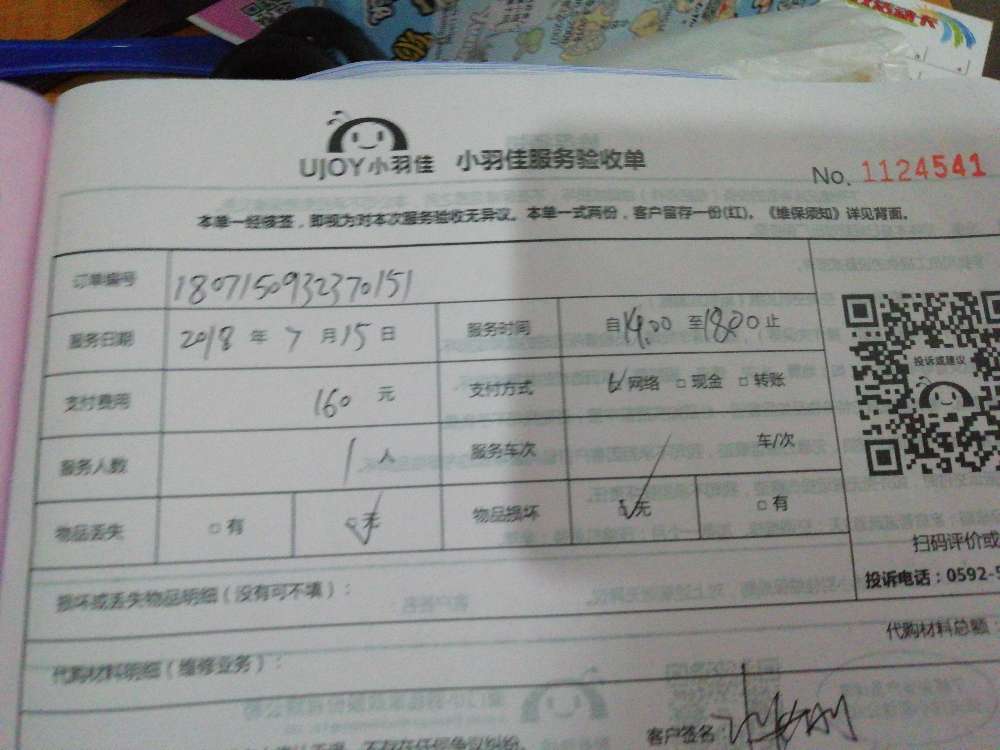 UJOY小羽佳 小羽佳服务验收单
No. 1124541
本单一经接签，即视为对本次服务验收无异议。本单一式两份，客户留存一份(红)。《维保须知》详见背面。
订单编号 180715093237015​1
服务日期 2018 年 7 月 15 日 服务时间 自 14:00 至 18:00 止
投诉或建议
支付费用 160 元 支付方式 网络 □ 现金 □ 转账
服务人数 1 人 服务车次 车/次
物品丢失 □ 有 无 物品损坏 无 □ 有
扫码评价或
投诉电话：0592-5
损坏或丢失物品明细（没有可不填）：
代购材料总额：
代购材料明细（维修业务）：
客户签名：
不存在任何争议纠纷。